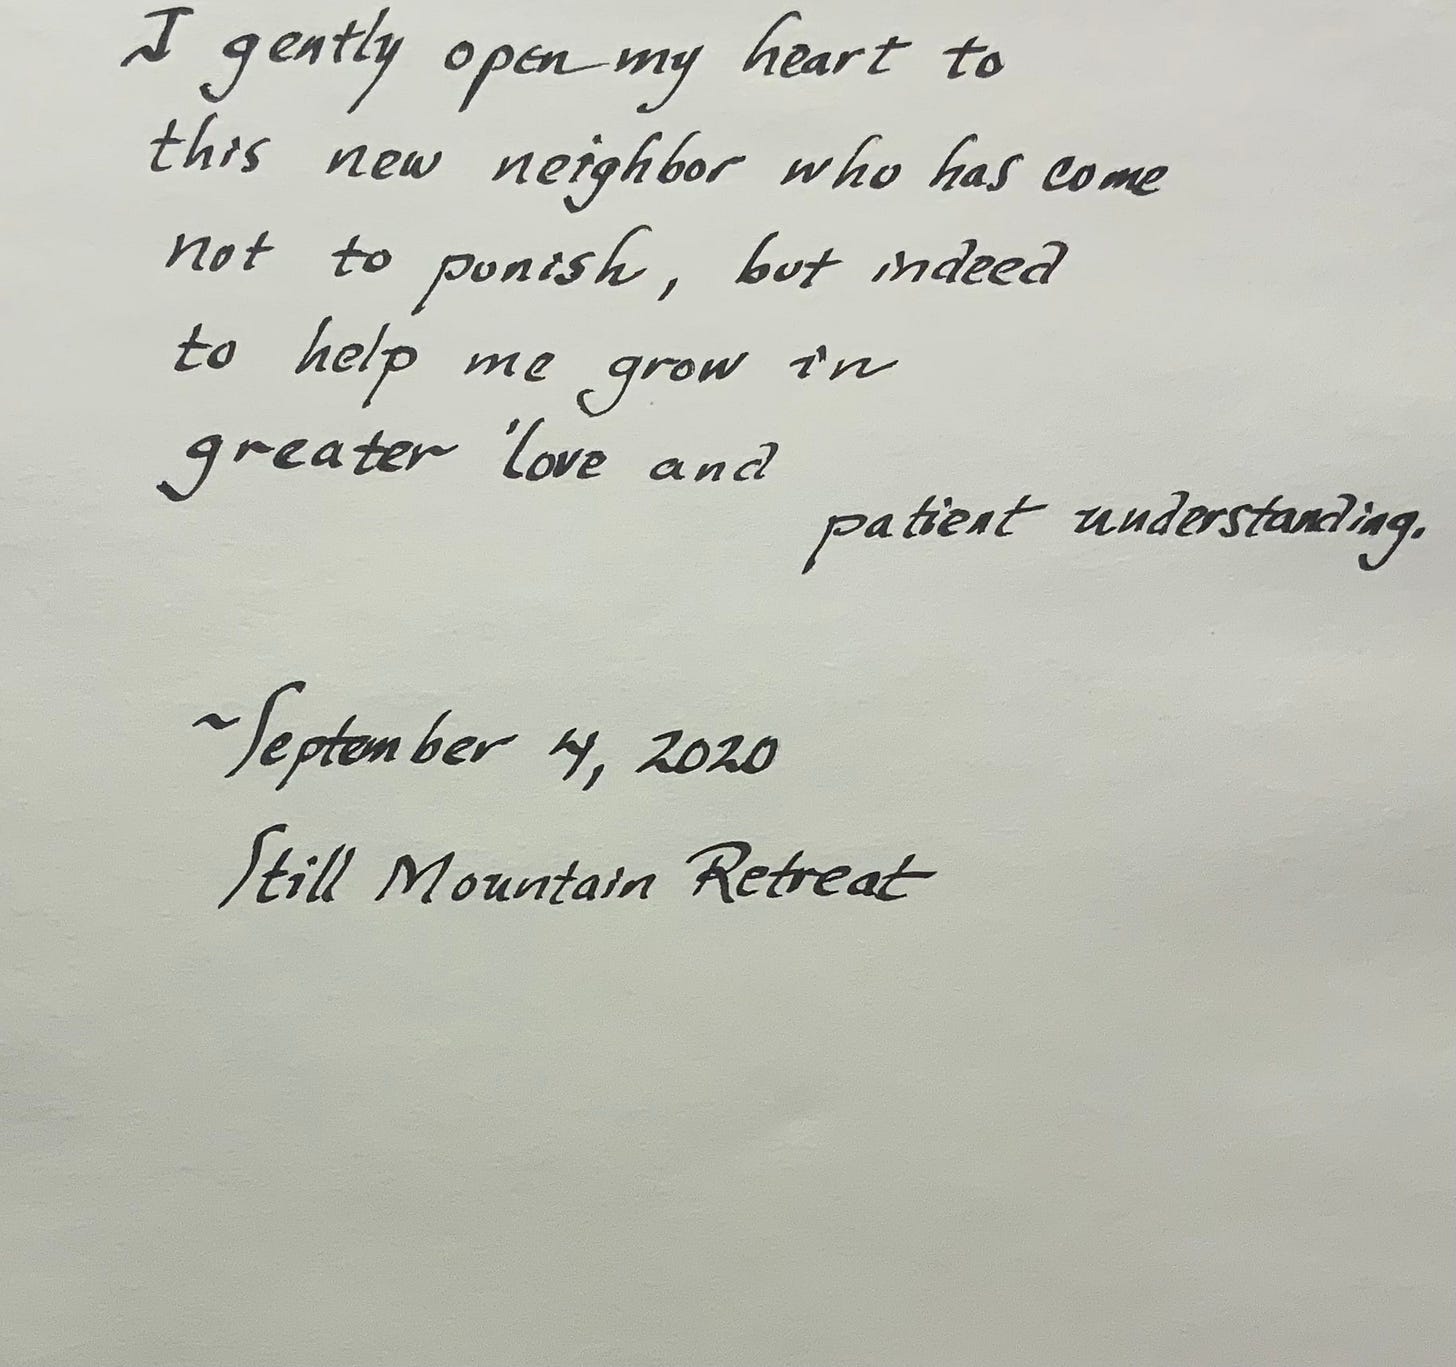 I gently open my heart to
this new neighbor who has come
not to punish, but indeed
to help me grow in
greater love and
patient understanding.
~September 4, 2020
Still Mountain Retreat